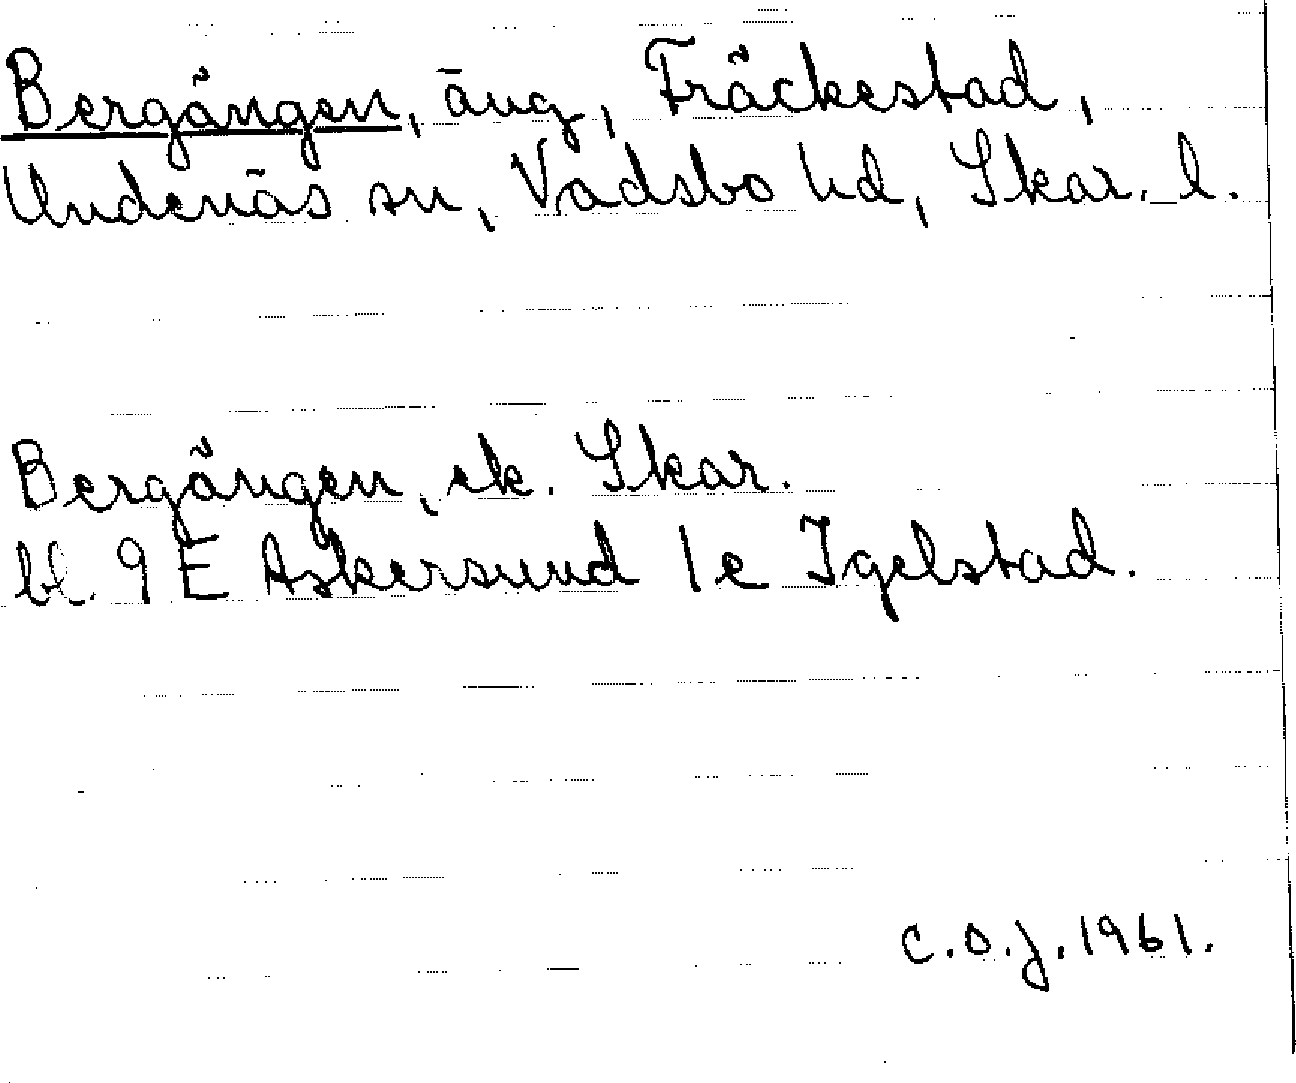 Bergängen, äng, Fräckestad,
Undenäs sn, Vadsbo hd, Skar. l.
Bergängen, ek. Skar.
bl. 9 E Askersund 1e Igelstad.
C.O.J. 1961.